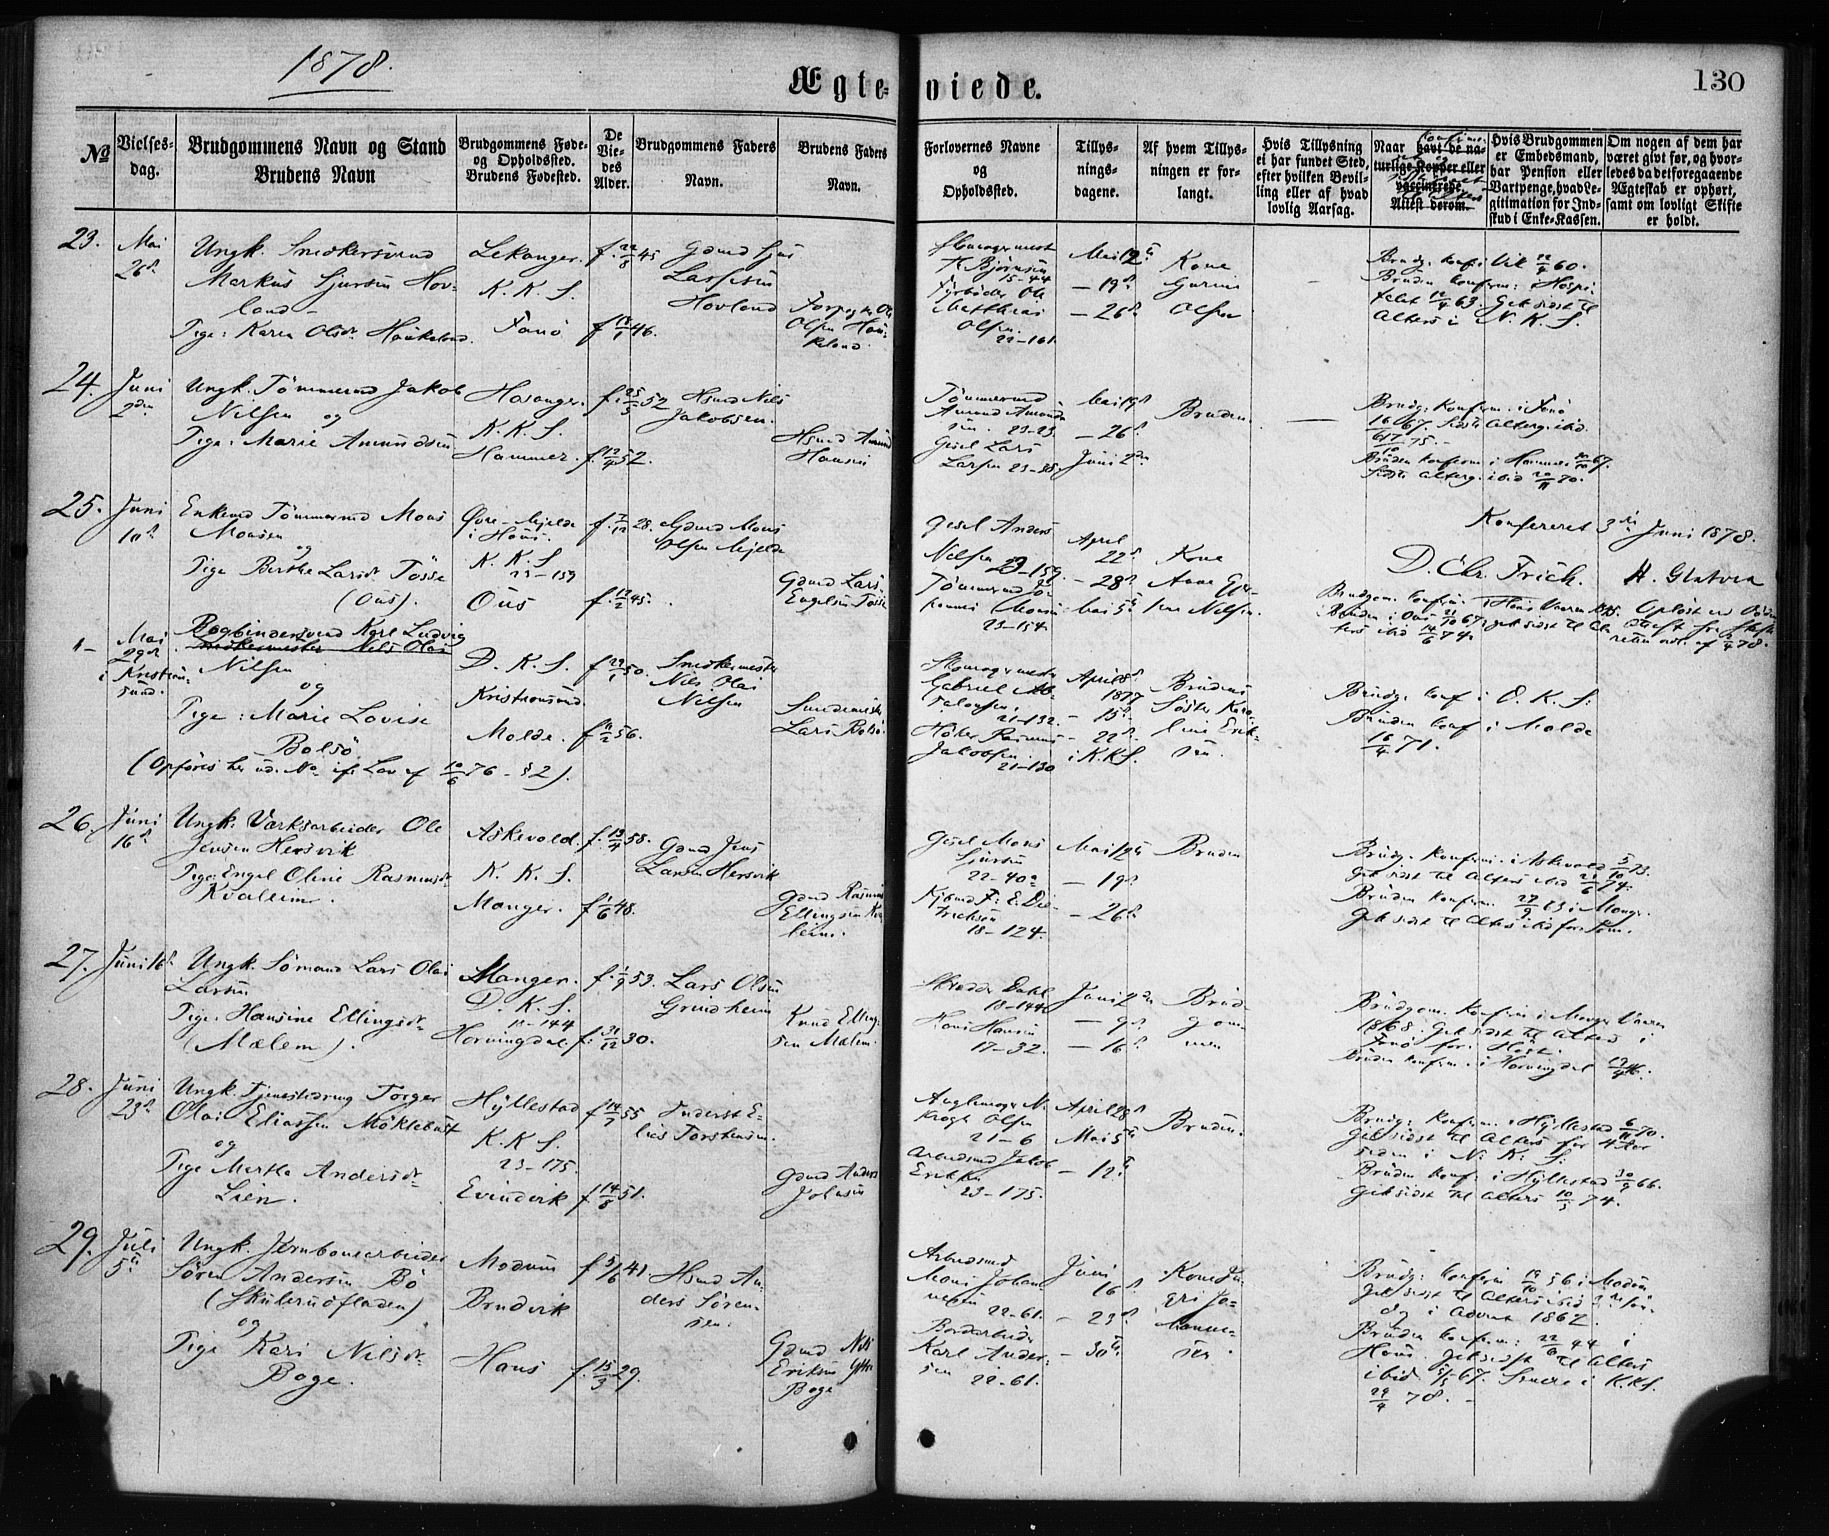 1878.
Ægte-viede.
130
No
Vielses-dag.
Brudgommens Navn og Stand
Brudens Navn
Brudgommens Føde- og Opholdssted.
Brudens Fødested.
De Vie-des Alder.
Brudgommens Faders Navn.
Brudens Faders Navn.
Forlovernes Navne og Opholdssted.
Tillys-nings-dagene.
Af hvem Tillys-ningen er for-langt.
Hvis Tillysning ei har fundet Sted, efter hvilken Bevil-ling eller af hvad lovlig Aarsag.
Naar havt de na-turlige Kopper eller vaccinerede. Attest derom.
Hvis Brudgommen er Embedsmand, har Pension eller Vartpenge, hvad Le-gitimation for Ind-skud i Enke-Kassen.
Om nogen af dem har været givt før, og hvor-ledes da det foregaaende Ægteskab er ophørt, samt om lovligt Skifte er holdt.
23.
Mai 26de
Ungk. Snedkersvend
Markus Sjursen Hov-
land -
Pige: Karen Olsdr Haukeland.
Lekanger.
K. K. S.
Fanø
f. 22/8 45
f. 46.
Gdmd Sjur
Larssen
Hovland
Olsen Hau-
keland.
K. Bjørnsen
15-44
Fyrbøder Ole
Matthias
Olsen.
22-161
Mai 12te
- 19de
- 26de
Kone
Gurine
Olsen
Brudg. konf. i Vik 60.
Bruden konfirm: i Hospi-
talet 63. Gik sidst til
Alters i N. K. S.
24.
Juni 2den
Ungk. Tømmermd Jakob
Nilsen og
Pige: Marie Amundsen
Hosanger.
K. K. S.
Hammer.
f. 25/5 52
f. 12/4 52.
Hsmd Nils
Jakobsen.
Hsmd Amund
Hansen
Tømmermd
Amund Amund-
sen. 23-23.
Gesel Lars
Larsen 23-25.
Mai 19de
- 26de
Juni 2den
Bruden.
Brudg: Konfirm. i Fanø
16/6 67. Sidst Alterg. ibid.
17/10 75. -
Bruden konfirm i Hammer 67.
Sidst alterg. ibid 20/11 70.
25.
Juni 10de
Enkemd Tømmermd Mons
Monsen
og
Pige Berthe Larsdr Tosse
(Ous).
Øvre-Mjelde
i Haus.
K. K. S
23-159
Ous
f. 7/12 28.
f. 12/2 45.
Gdmd Mons
Olsen Mjelde
Gdmd Lars
Engelsen Tosse
Gesel Anders
Nilsen 23-159.
Tømmermd Jo-
hannes Monsen
23-154.
April
22de
- 28de
Mai 5te
Kone
Anne Gur-
ine Nilsen.
Konfereret 3die Juni 1878.
D. Chr. Frich.
Mai 29de
i Kristian-
sund.
Bogbindersvend Karl Ludvig
Snedkermester Nils Olai
Nilsen
og
Pige: Marie Lovise
Bolsø
(Opføres her ud. No ifl. Lov af 10/6 76 - §2).
D. K. S.
Kristiansund.
Molde.
f. 29/1 50.
f. 56.
Snedkermester
Nils Olai
Nilsen
Lars Bolsø.
Gabriel Ab-
salonsen.
21-132
Høker Rasmus
Jakobsen
21-130
April 8de
1877
- 15de
- 22de
i K.K.S.
Brudens
Søster Karo-
line Erik-
sen.
Brudg. konf i D. K. S.
Bruden konf i Molde
16/4 71.
26.
Juni 16de
Ungk. Værksarbeider Ole
Jensen Hersvik
Pige: Engel Oline Rasmusdr
Kvalem.
Askevold.
K. K. S.
Manger.
f. 13/4 58.
f. 1/6 48.
Gdmd Jens
Larsen Hersvik
Gdmd Rasmus
Ellingsen Kva-
leim.
Gesel Mons
Sjursen
22-40a
Kjbmd F: E. Die-
trichsen
18-124.
Mai 12te
- 19de
- 26de
Bruden
Brudg. konfirm. i Askevold 5/10 73.
Gik sidst til Alters ibid 21/6 74.
Bruden konfirm. 27/9 63 i Manger.
Gik sidst til Alters ibid forr. Som.
27.
Juni 16de
Ungk. Sømand Lars Olai
Larsen
Pige: Hansine Ellingsdr
(Mælem).
Manger.
D. K. S.
18-144
Hornindal
f. 1/9 53.
f. 31/12 30.
Lars Olsen
Grindheim
Knud Elling-
sen Mælem.
Skræder Dahl
18-144
Hans Hansen
17-32.
Juni 2den
- 9de
- 16de
Brud-
gom-
men
Brudgom. konfirm i Manger Vaaren
1868. Gik sidst til Alters i
Fanø forr. Høst.
Bruden konfirm. i Hornindal 46.
28.
Juni 23de
Ungk. Tjenestedreng Torger
Olai Eliassen Møklebust
og
Pige Marthe Andersdr
Lien.
Hyllestad
K. K. S.
23-175.
Evindvik
f. 14/7 55
f. 14/8 51.
Inderst E-
lias Torstensen.
Gdmd Anders
Johnsen
Krogh Olsen
21-6
Arbeidsmd Jakob
Eriksen
23-175.
April 28de
Mai 5te
- 12te
Bruden.
Brudg: konfirm. i Hyllestad 6/11 70.
Gik sidst til Alters for 4 Aar
siden i N: K: S:
Bruden konf. i Hyllestad 30/9 66.
Gik sidst til Alters 10/5 74.
29.
Juli 5te
Ungk. Jernbanearbeider
Søren Andersen Bø
(Skulerudfladen)
og
Pige Kari Nilsdr
Boge.
Modum
Brudvik
Haus
f. 5/6 41
f. 15/3 29.
Hsmd An-
ders Søren-
sen.
Gdmd Nils
Eriksen Yttre
Boge
Arbeidsmd
Mons Johan-
nesen
22-61.
Bordarbeider
Karl Ander-
sen 22-61.
Juni
16de
- 23de
- 30te
Kone In-
geri Jo-
hanne-
sen
Brudg: konfirm 56 i Modum
Gik sidst til Alters ibid
dag i Advent 1862.
Bruden konfirm: 22/6 44 i
Haus. Gik sidst til Alters
ibid 67. Senere i K.K.S.
29/4 78. -